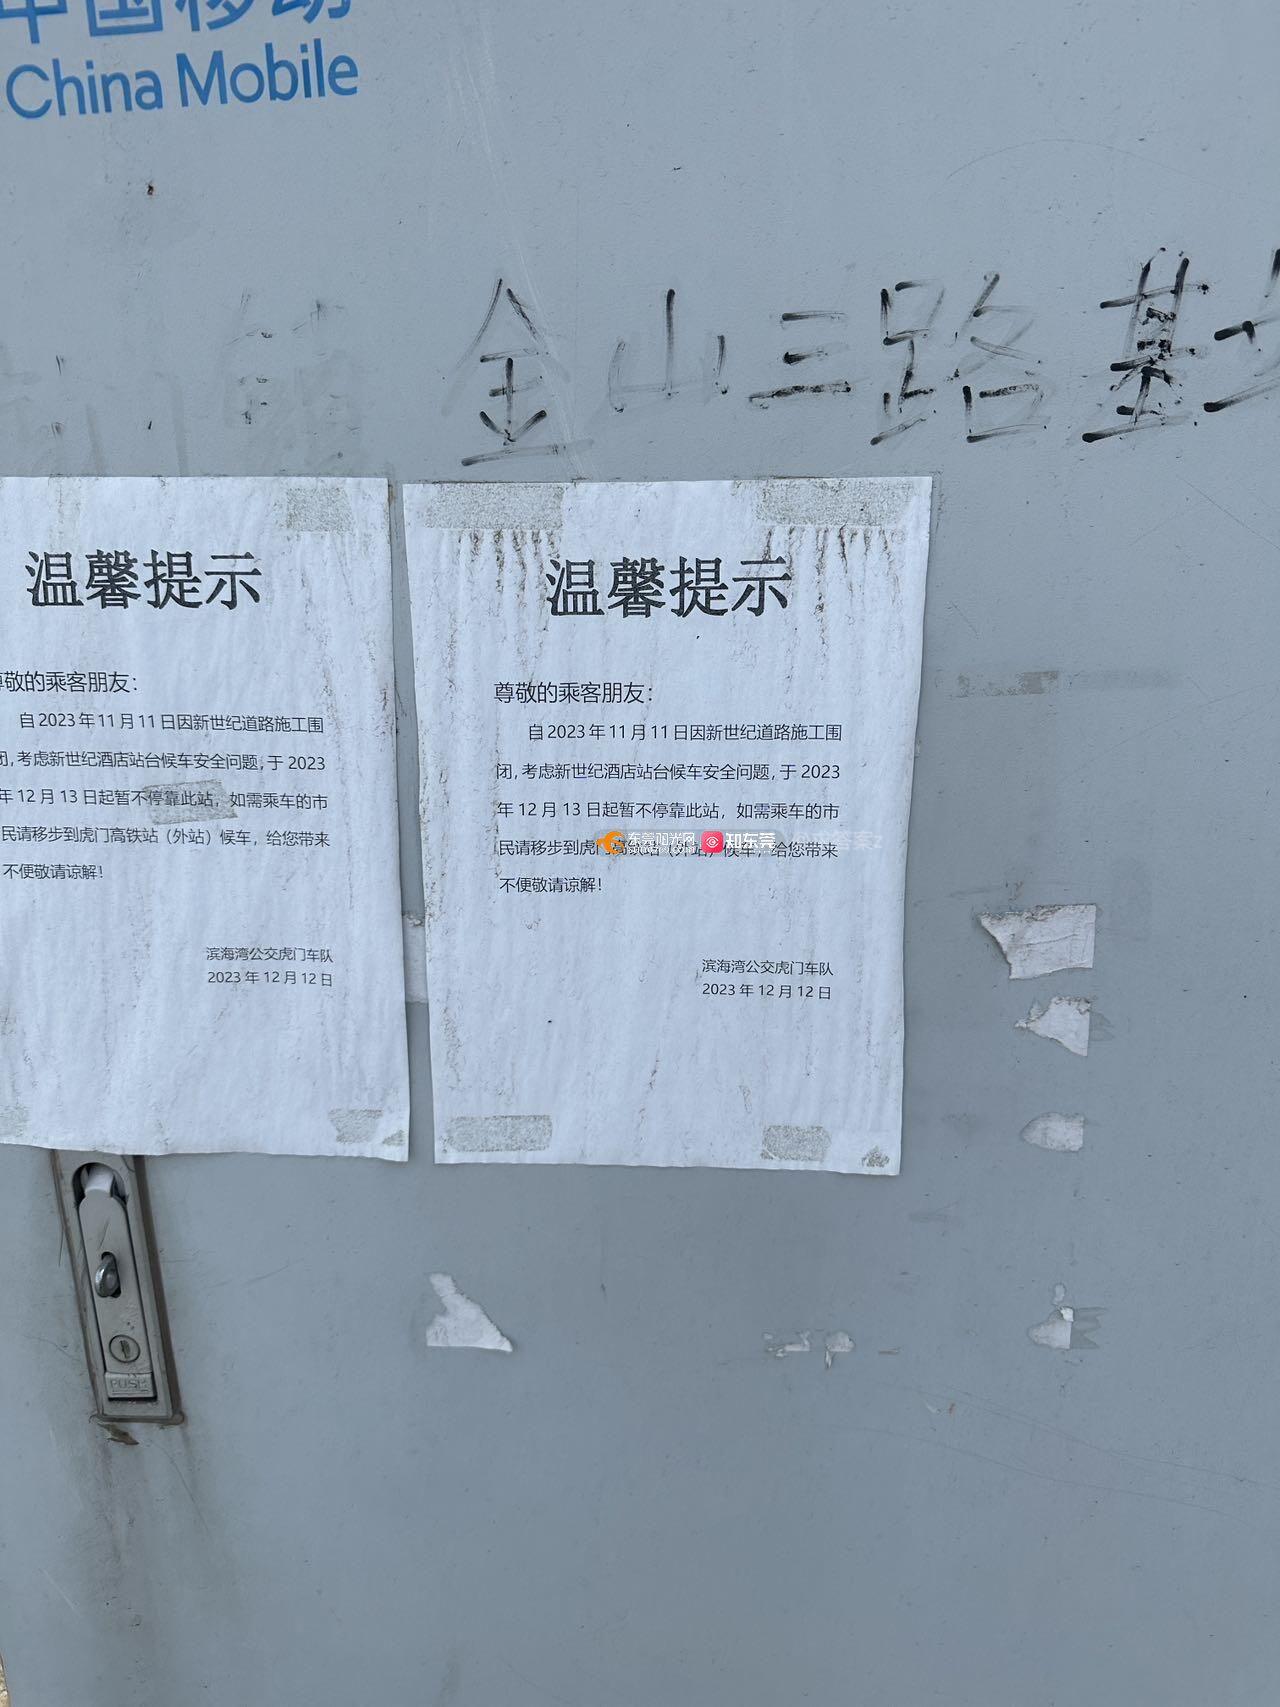 中国移动
China Mobile
金山三路基
温馨提示
尊敬的乘客朋友：
自2023年11月11日因新世纪道路施工围
闭，考虑新世纪酒店站台候车安全问题，于 2023
年 12 月 13 日起暂不停靠此站，如需乘车的市
民请移步到虎门高铁站（外站）候车，给您带来
不便敬请谅解！
滨海湾公交虎门车队
2023 年 12 月 12 日
温馨提示
尊敬的乘客朋友：
自 2023 年 11 月 11 日因新世纪道路施工围
闭，考虑新世纪酒店站台候车安全问题，于 2023
年 12 月 13 日起暂不停靠此站，如需乘车的市
民请移步到虎门高铁站（外站）候车，给您带来
不便敬请谅解！
滨海湾公交虎门车队
2023 年 12 月 12 日
东莞阳光网 知东莞 @求答案z
PUSH